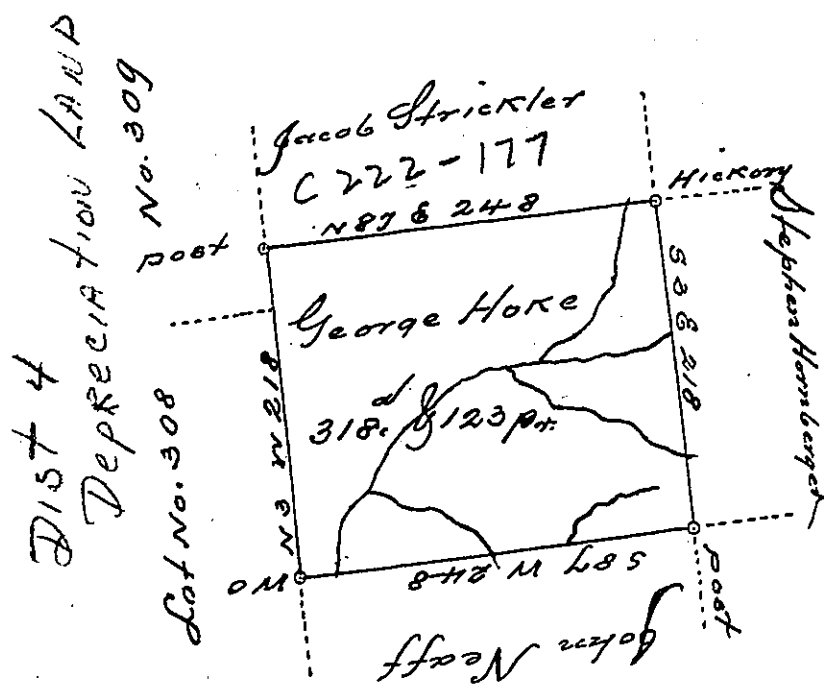 DIST 4
DepRECIATION LAND
No. 309
Lot No. 308
Jacob Strickler
C 222-177
N 87 E 248
post
Hickory
Stephen Hornberger
S 3 E 218
George Hoke
318 a. & 123 pr.
N 3 W 218
WO
S 87 W 248
post
John Neaff